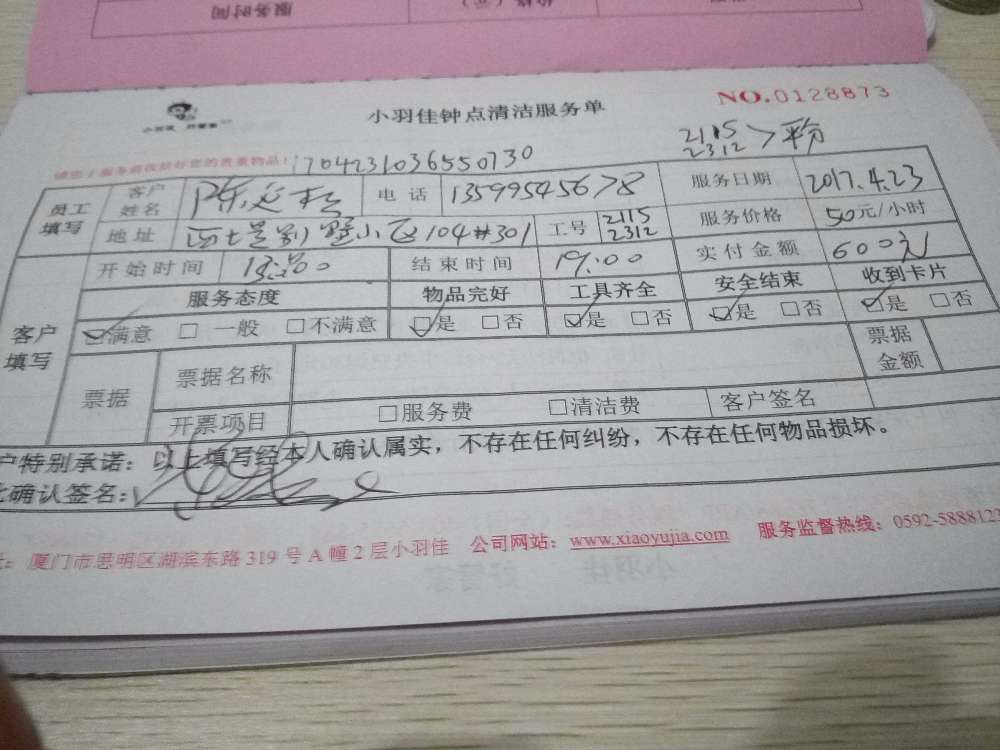 服务时间
价格（元）
小羽佳 好管家
小羽佳钟点清洁服务单
NO.0128873
2115
2312 > 平分
请您于服务前收拾好您的贵重物品！
1704231036550730
员工填写 客户姓名 陈 电话 13599545678 服务日期 2017.4.23
地址 别墅小区104#301 工号 2115 2312 服务价格 50元/小时
客户填写 开始时间 13:00 结束时间 19:00 实付金额 600元
服务态度 物品完好 工具齐全 安全结束 收到卡片
☑满意 □ 一般 □不满意 ☑是 □否 ☑是 □否 ☑是 □否 ☑是 □否
票据 票据名称 票据金额
开票项目 □服务费 □清洁费 客户签名
户特别承诺：以上填写经本人确认属实，不存在任何纠纷，不存在任何物品损坏。
此确认签名：
址：厦门市思明区湖滨东路 319 号 A 幢 2 层小羽佳 公司网站：www.xiaoyujia.com 服务监督热线：0592-5888123